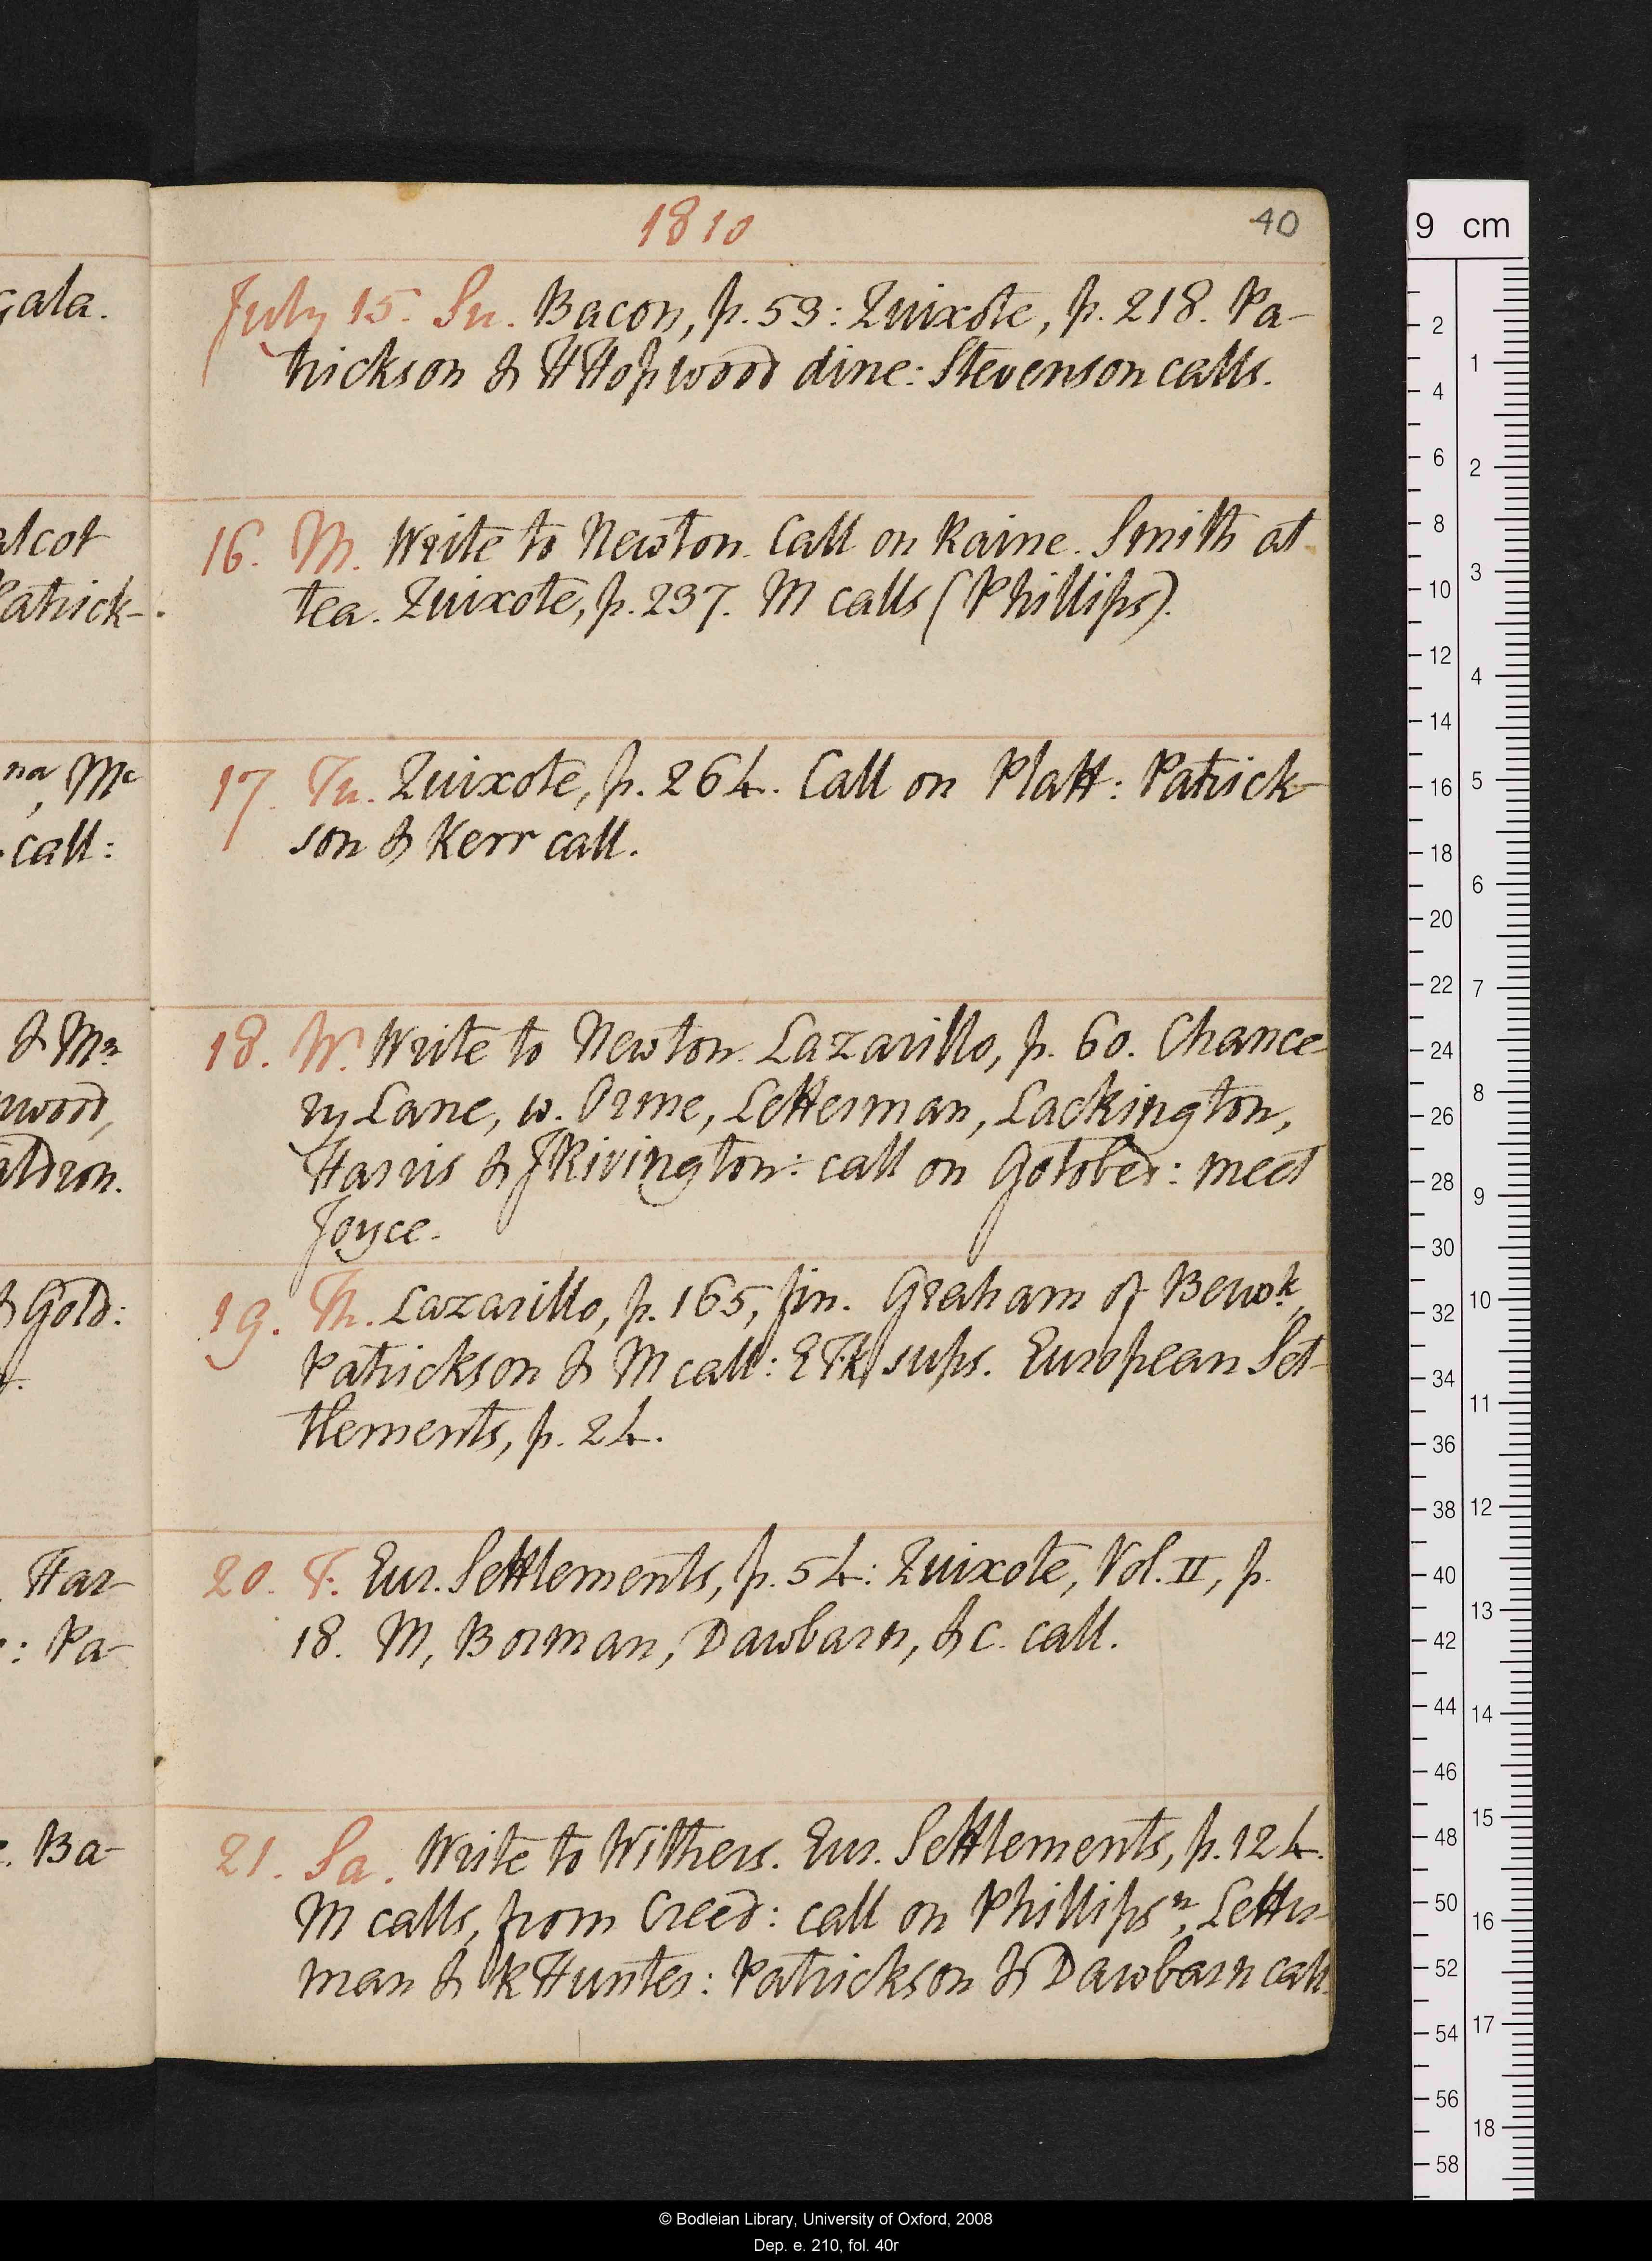 1810
40
July 15. Su. Bacon, p. 59: Quixote, p. 218. Pa-
trickson & H Hopwood dine: Stevenson calls.
16. M. Write to Newton. Call on Raine. Smith at
tea. Quixote, p. 237. M calls (Phillips).
17. Tu. Quixote, p. 264. Call on Platt: Patrick-
son & Kerr call.
18. W. Write to Newton. Lazarillo, p. 60. Chance-
ry Lane, w. Orme, Letterman, Lackington,
Harris & J Rivington: call on Gotobed: meet
Joyce.
19. Th. Lazarillo, p. 165, fin. Graham of Berwk,
Patrickson & M call: E Fk sups. European Set-
tlements, p. 24.
20. F. Eur. Settlements, p. 54: Quixote, Vol. II, p.
18. M, Borman, Dawbarn, &c. call.
21. Sa. Write to Withers. Eur. Settlements, p. 124.
M calls, from Creed: call on Phillips n, Letter-
man & R Hunter: Patrickson & Dawbarn call.
çala.
alcot
Patrick-
na, Mc
call:
& Mrs
pwood,
aldron.
& Gold:
Har-
: Pa-
. Ba-
9 cm
2
4
6
8
10
12
14
16
18
20
22
24
26
28
30
32
34
36
38
40
42
44
46
48
50
52
54
56
58
1
2
3
4
5
6
7
8
9
10
11
12
13
14
15
16
17
18
© Bodleian Library, University of Oxford, 2008
Dep. e. 210, fol. 40r